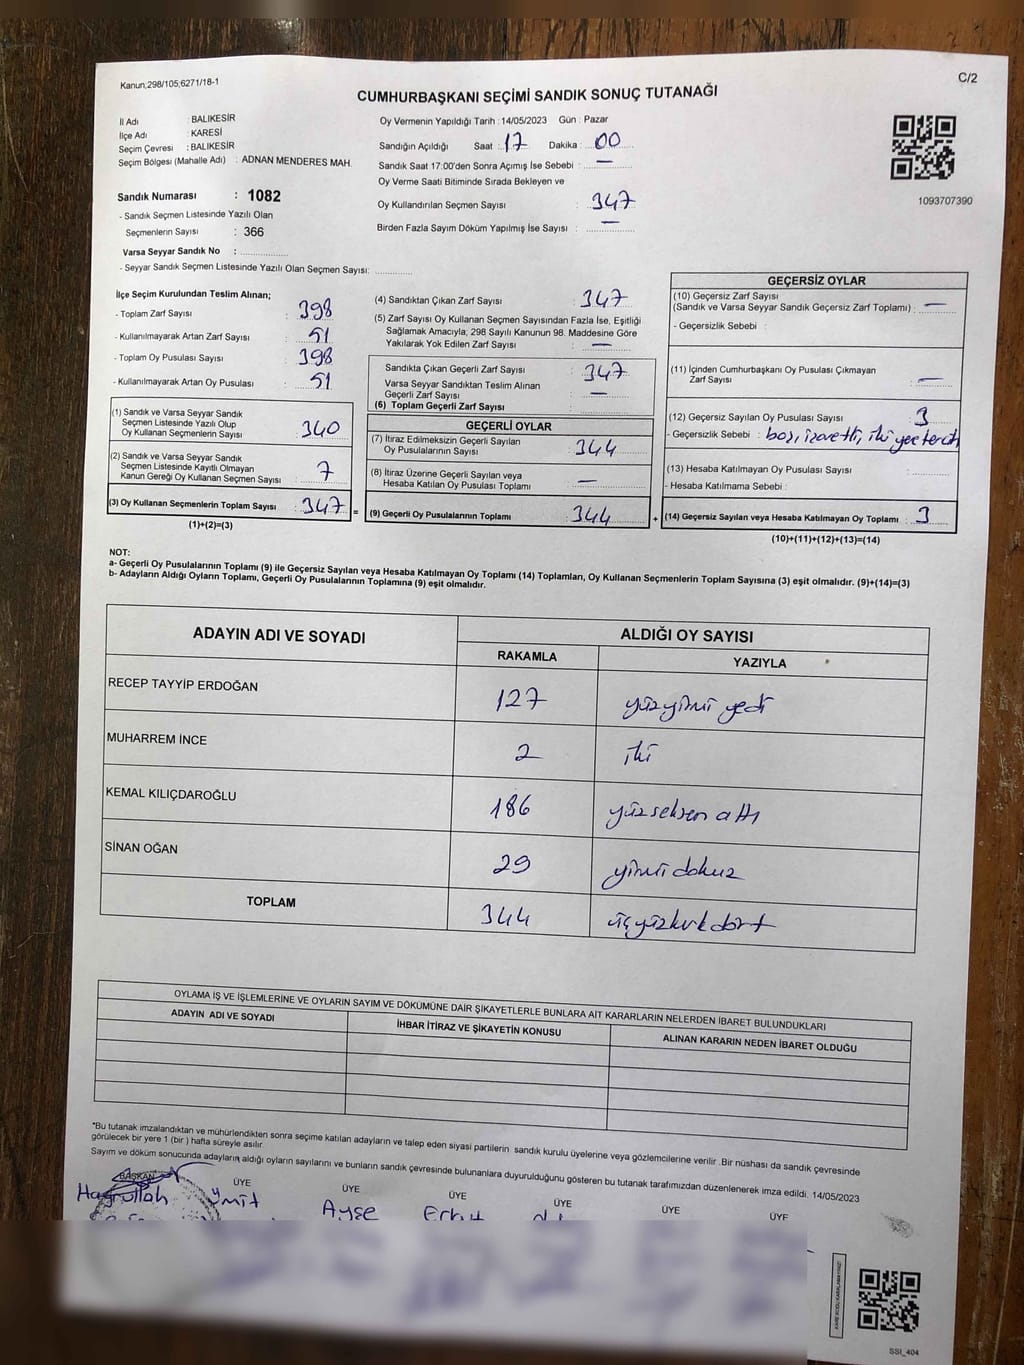 Kanun,298/105;6271/18-1
C/2
CUMHURBAŞKANI SEÇİMİ SANDIK SONUÇ TUTANAĞI
İl Adı : BALIKESİR
İlçe Adı : KARESİ
Seçim Çevresi : BALIKESİR
Seçim Bölgesi (Mahalle Adı) : ADNAN MENDERES MAH.
Oy Vermenin Yapıldığı Tarih : 14/05/2023 Gün : Pazar
Sandığın Açıldığı Saat : 17 Dakika : 00
Sandık Saat 17:00'den Sonra Açımış İse Sebebi : —
Oy Verme Saati Bitiminde Sırada Bekleyen ve
Oy Kullandırılan Seçmen Sayısı : 347
Birden Fazla Sayım Döküm Yapılmış İse Sayısı : —
1093707390
Sandık Numarası : 1082
- Sandık Seçmen Listesinde Yazılı Olan
Seçmenlerin Sayısı : 366
Varsa Seyyar Sandık No :
- Seyyar Sandık Seçmen Listesinde Yazılı Olan Seçmen Sayısı:
İlçe Seçim Kurulundan Teslim Alınan;
- Toplam Zarf Sayısı : 398
- Kullanılmayarak Artan Zarf Sayısı : 51
- Toplam Oy Pusulası Sayısı : 398
- Kullanılmayarak Artan Oy Pusulası : 51
(1) Sandık ve Varsa Seyyar Sandık
Seçmen Listesinde Yazılı Olup
Oy Kullanan Seçmenlerin Sayısı : 340
(2) Sandık ve Varsa Seyyar Sandık
Seçmen Listesinde Kayıtlı Olmayan
Kanun Gereği Oy Kullanan Seçmen Sayısı : 7
(3) Oy Kullanan Seçmenlerin Toplam Sayısı : 347 =
(1)+(2)=(3)
(4) Sandıktan Çıkan Zarf Sayısı : 347
(5) Zarf Sayısı Oy Kullanan Seçmen Sayısından Fazla İse, Eşitliği
Sağlamak Amacıyla; 298 Sayılı Kanunun 98. Maddesine Göre
Yakılarak Yok Edilen Zarf Sayısı : —
Sandıkta Çıkan Geçerli Zarf Sayısı : 347
Varsa Seyyar Sandıktan Teslim Alınan
Geçerli Zarf Sayısı : —
(6) Toplam Geçerli Zarf Sayısı :
GEÇERLİ OYLAR
(7) İtiraz Edilmeksizin Geçerli Sayılan
Oy Pusulalarının Sayısı : 344
(8) İtiraz Üzerine Geçerli Sayılan veya
Hesaba Katılan Oy Pusulası Toplamı : —
(9) Geçerli Oy Pusulalarının Toplamı : 344 +
GEÇERSİZ OYLAR
(10) Geçersiz Zarf Sayısı
(Sandık ve Varsa Seyyar Sandık Geçersiz Zarf Toplamı) : —
- Geçersizlik Sebebi :
(11) İçinden Cumhurbaşkanı Oy Pusulası Çıkmayan
Zarf Sayısı : —
(12) Geçersiz Sayılan Oy Pusulası Sayısı : 3
- Geçersizlik Sebebi : boş, işaretli, iki yere tercih
(13) Hesaba Katılmayan Oy Pusulası Sayısı :
- Hesaba Katılmama Sebebi :
(14) Geçersiz Sayılan veya Hesaba Katılmayan Oy Toplamı : 3
(10)+(11)+(12)+(13)=(14)
NOT:
a- Geçerli Oy Pusulalarının Toplamı (9) ile Geçersiz Sayılan veya Hesaba Katılmayan Oy Toplamı (14) Toplamları, Oy Kullanan Seçmenlerin Toplam Sayısına (3) eşit olmalıdır. (9)+(14)=(3)
b- Adayların Aldığı Oyların Toplamı, Geçerli Oy Pusulalarının Toplamına (9) eşit olmalıdır.
ADAYIN ADI VE SOYADI ALDIĞI OY SAYISI
RAKAMLA YAZIYLA
RECEP TAYYİP ERDOĞAN 127 yüzyirmi yedi
MUHARREM İNCE 2 iki
KEMAL KILIÇDAROĞLU 186 yüzseksen altı
SİNAN OĞAN 29 yirmi dokuz
TOPLAM 344 üçyüzkırkdört
OYLAMA İŞ VE İŞLEMLERİNE VE OYLARIN SAYIM VE DÖKÜMÜNE DAİR ŞİKAYETLERLE BUNLARA AİT KARARLARIN NELERDEN İBARET BULUNDUKLARI
ADAYIN ADI VE SOYADI İHBAR İTİRAZ VE ŞİKAYETİN KONUSU ALINAN KARARIN NEDEN İBARET OLDUĞU
"Bu tutanak imzalandıktan ve mühürlendikten sonra seçime katılan adayların ve talep eden siyasi partilerin sandık kurulu üyelerine veya gözlemcilerine verilir .Bir nüshası da sandık çevresinde
görülecek bir yere 1 (bir ) hafta süreyle asılır.
Sayım ve döküm sonucunda adayların aldığı oyların sayılarını ve bunların sandık çevresinde bulunanlara duyurulduğunu gösteren bu tutanak tarafımızdan düzenlenerek imza edildi. 14/05/2023
BAŞKAN ÜYE ÜYE ÜYE ÜYE ÜYE ÜYE
Hayrullah Ümit Ayşe
SSI_404